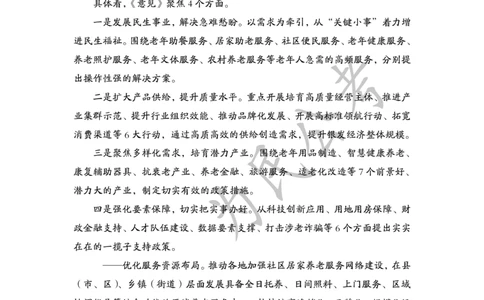 具体看，《意见》聚焦 4 个方面。
一是发展民生事业，解决急难愁盼。以需求为牵引，从“关键小事”着力增
进民生福祉。围绕老年助餐服务、居家助老服务、社区便民服务、老年健康服务、
养老照护服务、老年文体服务、农村养老服务等老年人急需的高频服务，分别提
出操作性强的解决方案。
二是扩大产品供给，提升质量水平。重点开展培育高质量经营主体、推进产
业集群示范、提升行业组织效能、推动品牌化发展、开展高标准领航行动、拓宽
消费渠道等 6 大行动，通过高质高效的供给创造需求，提升银发经济整体规模。
三是聚焦多样化需求，培育潜力产业。围绕老年用品制造、智慧健康养老、
康复辅助器具、抗衰老产业、养老金融、旅游服务、适老化改造等 7 个前景好、
潜力大的产业，制定切实有效的政策措施。
四是强化要素保障，切实把实事办好。从科技创新应用、用地用房保障、财
政金融支持、人才队伍建设、数据要素支撑、打击涉老诈骗等 6 个方面提出实实
在在的一揽子支持政策。
——优化服务资源布局。推动各地加强社区居家养老服务网络建设，在县
（市、区）、乡镇（街道）层面发展具备全日托养、日间照料、上门服务、区域
为民公考